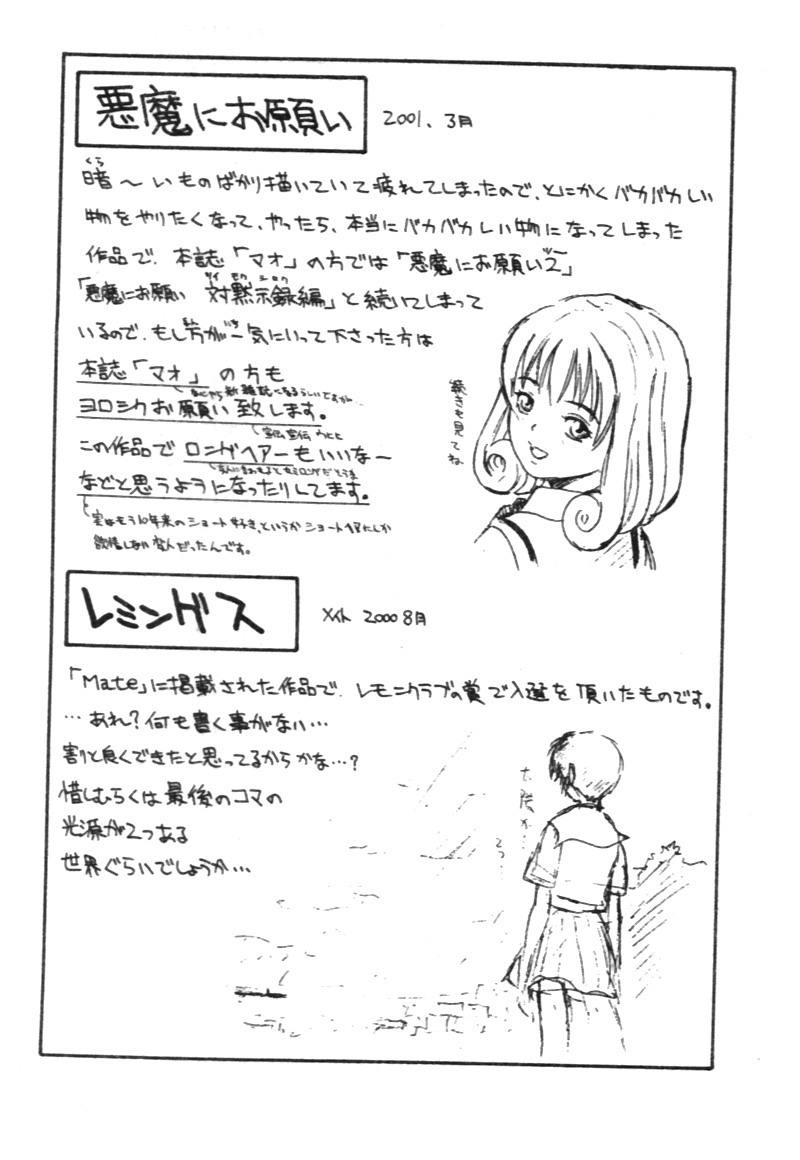 悪魔にお願い 2001. 3月
暗〜いものばかり描いていて疲れてしまったので、とにかくバカバカしい
くら
物をやりたくなって、やったら、本当にバカバカしい物になってしまった
作品で、本誌「マオ」の方では「悪魔にお願い2」
ツー
「悪魔にお願い 対黙示録編」と続いてしまって
タイ モク シ ロク
いるので、もし万が一気にいって下さった方は
まん いち
本誌「マオ」の方も
新雑誌になるらしいですが…
ヨロシクお願い致します。
宣伝宣伝 ウヒヒ
この作品でロングヘアーもいいな〜
などと思うようになったりしてます。
実はもう10年来のショート好き、というかショート
欲情しない変人だったんです。
続きも見てね
レミングス メイト 2000 8月
「Mate」に掲載された作品で、レモンクラブの賞で入選を頂いたものです。
…あれ?何も書く事がない…
割と良くできたと思ってるからかな…?
惜しむらくは最後のコマの
光源が2つある
世界ぐらいでしょうか…
太陽が…
2つ…